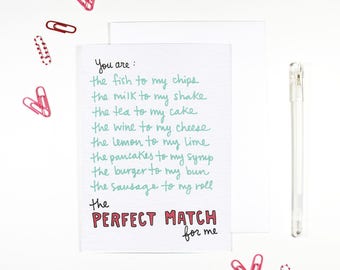 You are:
the fish to my chips
the milk to my shake
the tea to my cake
the wine to my cheese
the lemon to my lime
the pancakes to my syrup
the burger to my bun
the sausage to my roll
the
PERFECT MATCH
for me